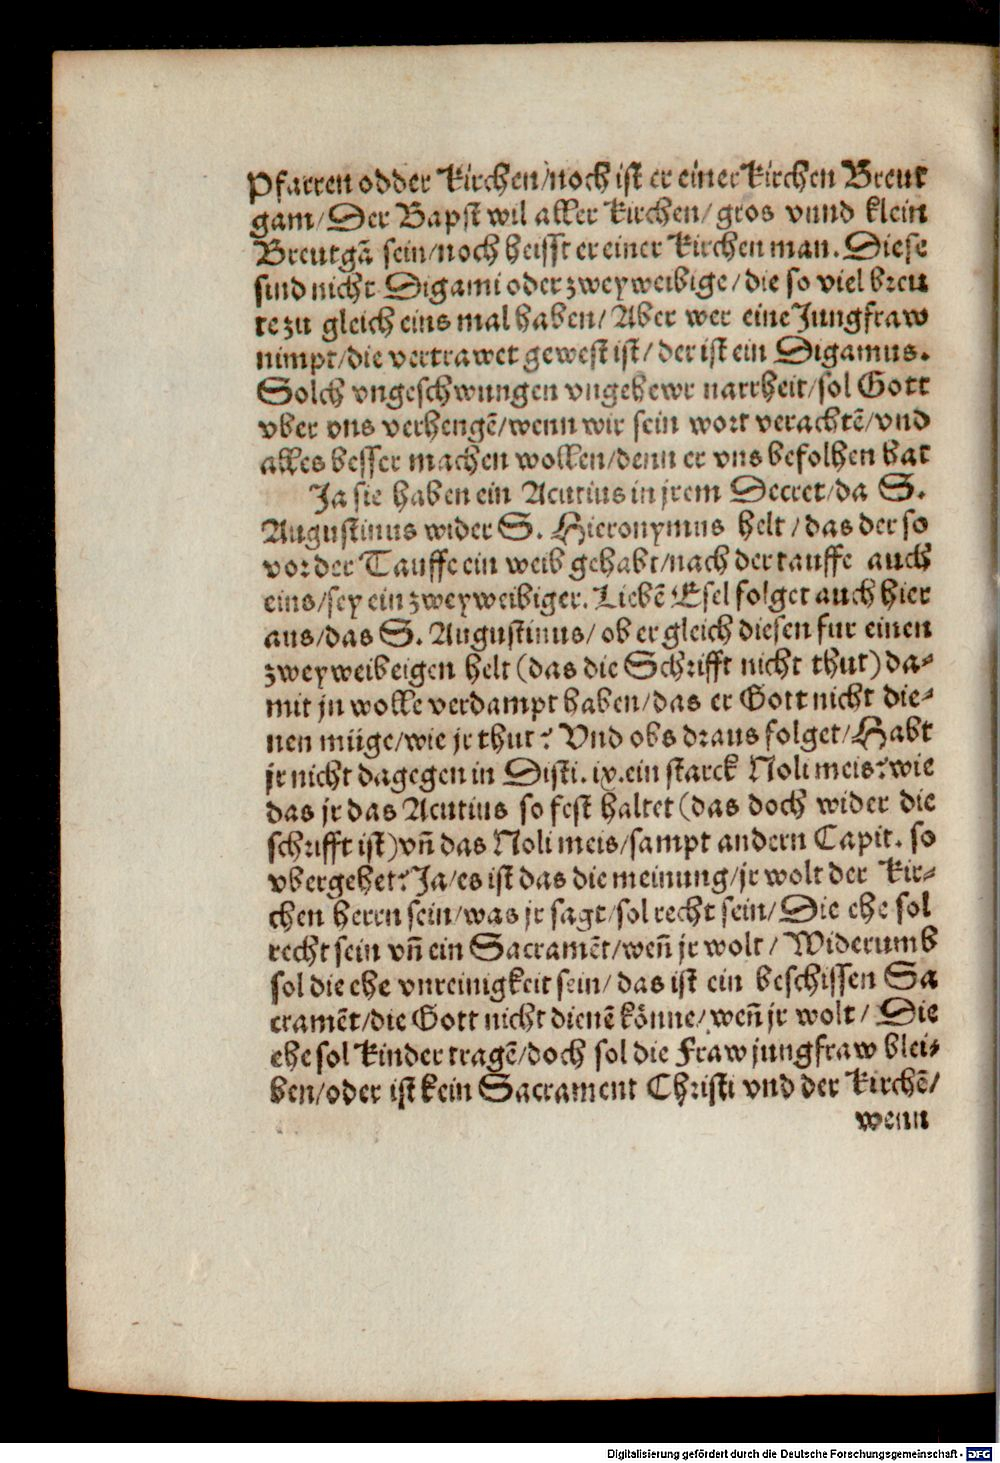 Pfarren odder Kirchen/noch ist er einer Kirchen Breut
gam/Der Bapst wil aller Kirchen/gros vnnd klein
Breutgā sein/noch heisst er einer Kirchen man. Diese
sind nicht Digami oder zweyweibige/die so viel breu
te zu gleich eins mal haben/Aber wer eine Jungfraw
nimpt/die vertrawet gewest ist/der ist ein Digamus.
Solch vngeschwungen vngehewr narrheit/sol Gott
vber vns verhengē/wenn wir sein wort verachtē/vnd
alles besser machen wollen/denn er vns befolhen hat
Ja sie haben ein Acutius in jrem Decret/da S.
Augustinus wider S. Hieronymus helt/das der so
vor der Tauffe ein weib gehabt/nach der tauffe auch
eins/sey ein zweyweibiger. Liebē Esel folget auch hier
aus/das S. Augustinus/ob er gleich diesen fur einen
zweyweibeigen helt (das die Schrifft nicht thut) da-
mit jn wolle verdampt haben/das er Gott nicht die-
nen müge/wie jr thut? Vnd obs draus folget/Habt
jr nicht dagegen in Disti. ix. ein starck Noli meis? wie
das jr das Acutius so fest haltet (das doch wider die
schrifft ist) vn̄ das Noli meis/sampt andern Capit. so
vbergehet? Ja/es ist das die meinung/jr wolt der Kir-
chen herrn sein/was jr sagt/sol recht sein/Die ehe sol
recht sein vn̄ ein Sacramēt/wen̄ jr wolt/Widerumb
sol die ehe vnreinigkeit sein/das ist ein beschissen Sa
cramēt/die Gott nicht dienē könne/wen̄ jr wolt/Die
ehe sol Kinder tragē/doch sol die Fraw jungfraw blei-
ben/oder ist kein Sacrament Christi vnd der Kirchē/
wenn
Digitalisierung gefördert durch die Deutsche Forschungsgemeinschaft - DFG